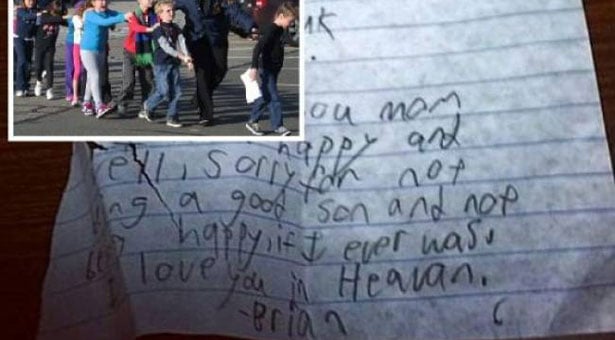 ou mom
happy and
ell, Sorry for not
ng a good son and not
happy, if I ever was.
I love you in Heavan.
-Brian